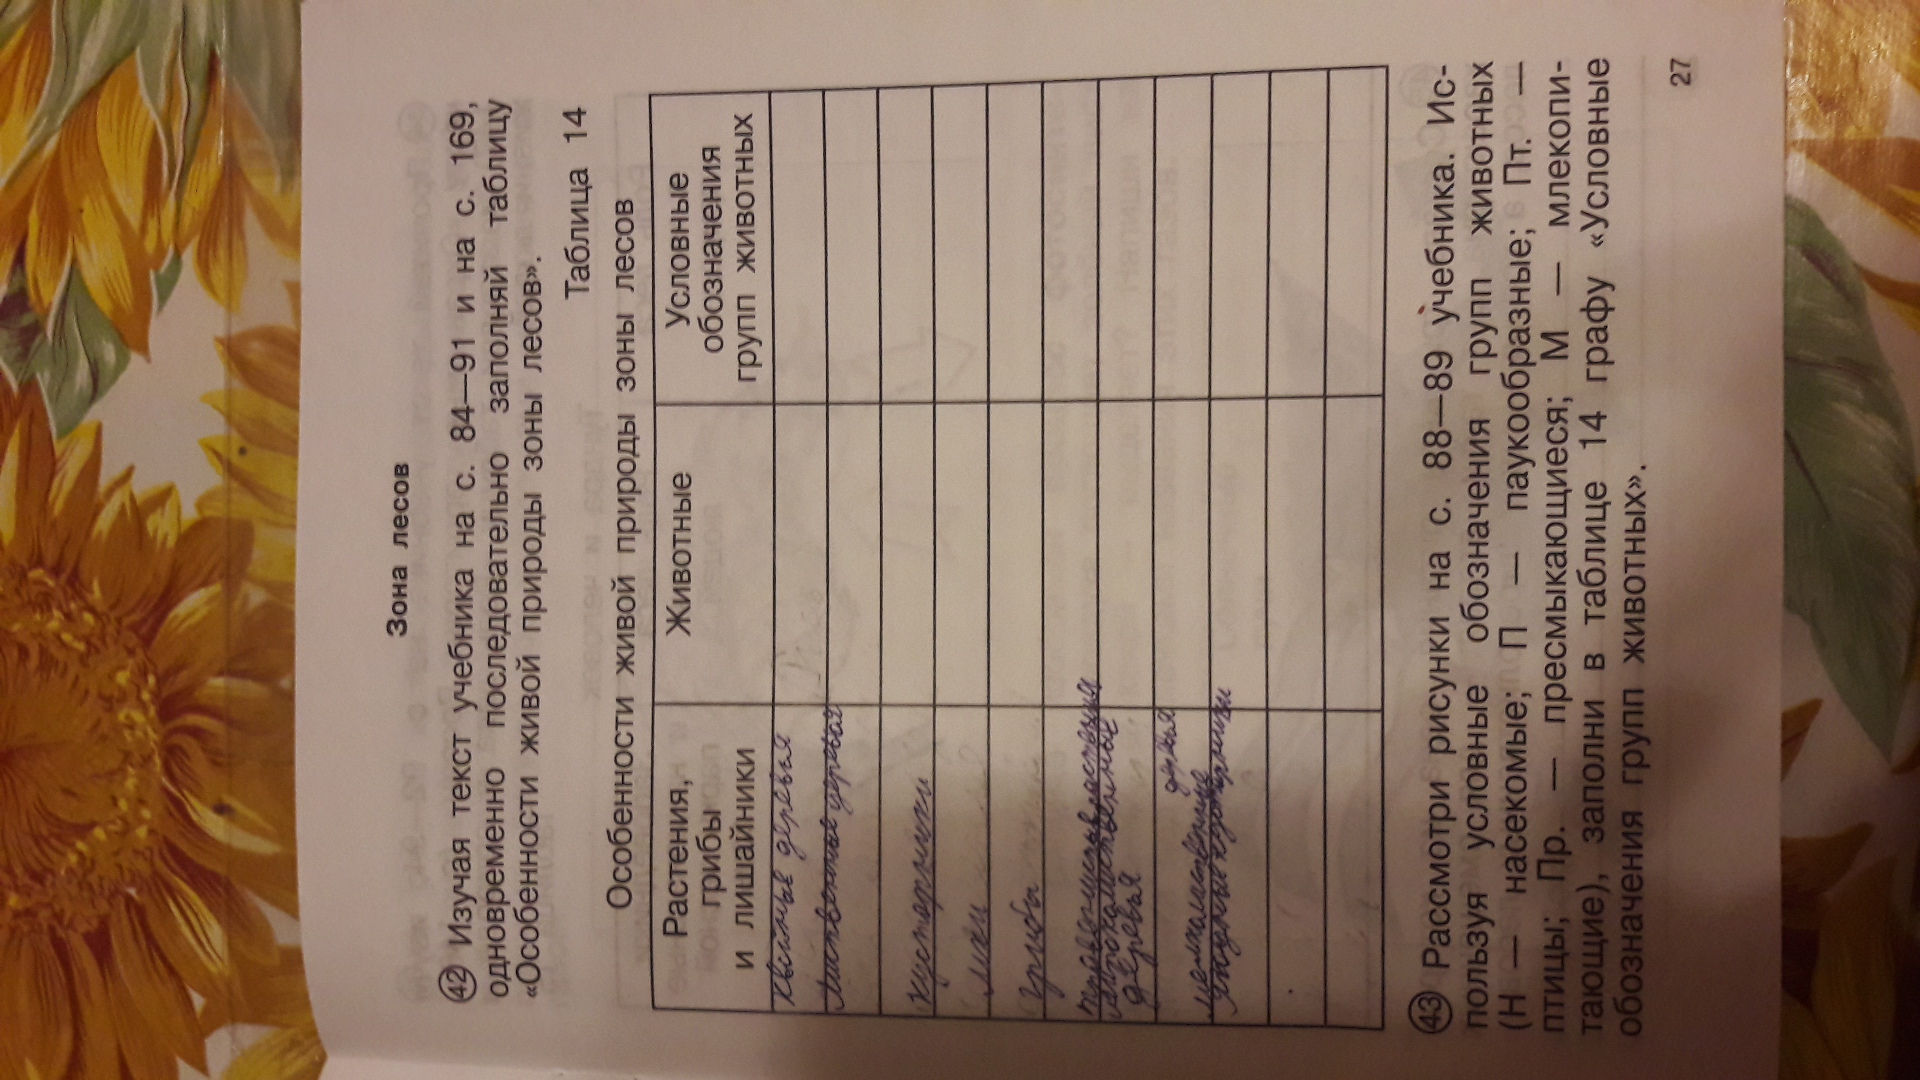 Зона лесов
42 Изучая текст учебника на с. 84—91 и на с. 169,
одновременно последовательно заполняй таблицу
«Особенности живой природы зоны лесов».
Таблица 14
Особенности живой природы зоны лесов
Растения,
грибы
и лишайники
Животные
Условные
обозначения
групп животных
хвойные деревья
лиственные деревья
кустарники
мхи
грибы
травы
широколиственные
деревья
мелколиственные
деревья
ягодные кустарники
43 Рассмотри рисунки на с. 88—89 учебника. Ис-
пользуя условные обозначения групп животных
(Н — насекомые; П — паукообразные; Пт. —
птицы; Пр. — пресмыкающиеся; М — млекопи-
тающие), заполни в таблице 14 графу «Условные
обозначения групп животных».
27